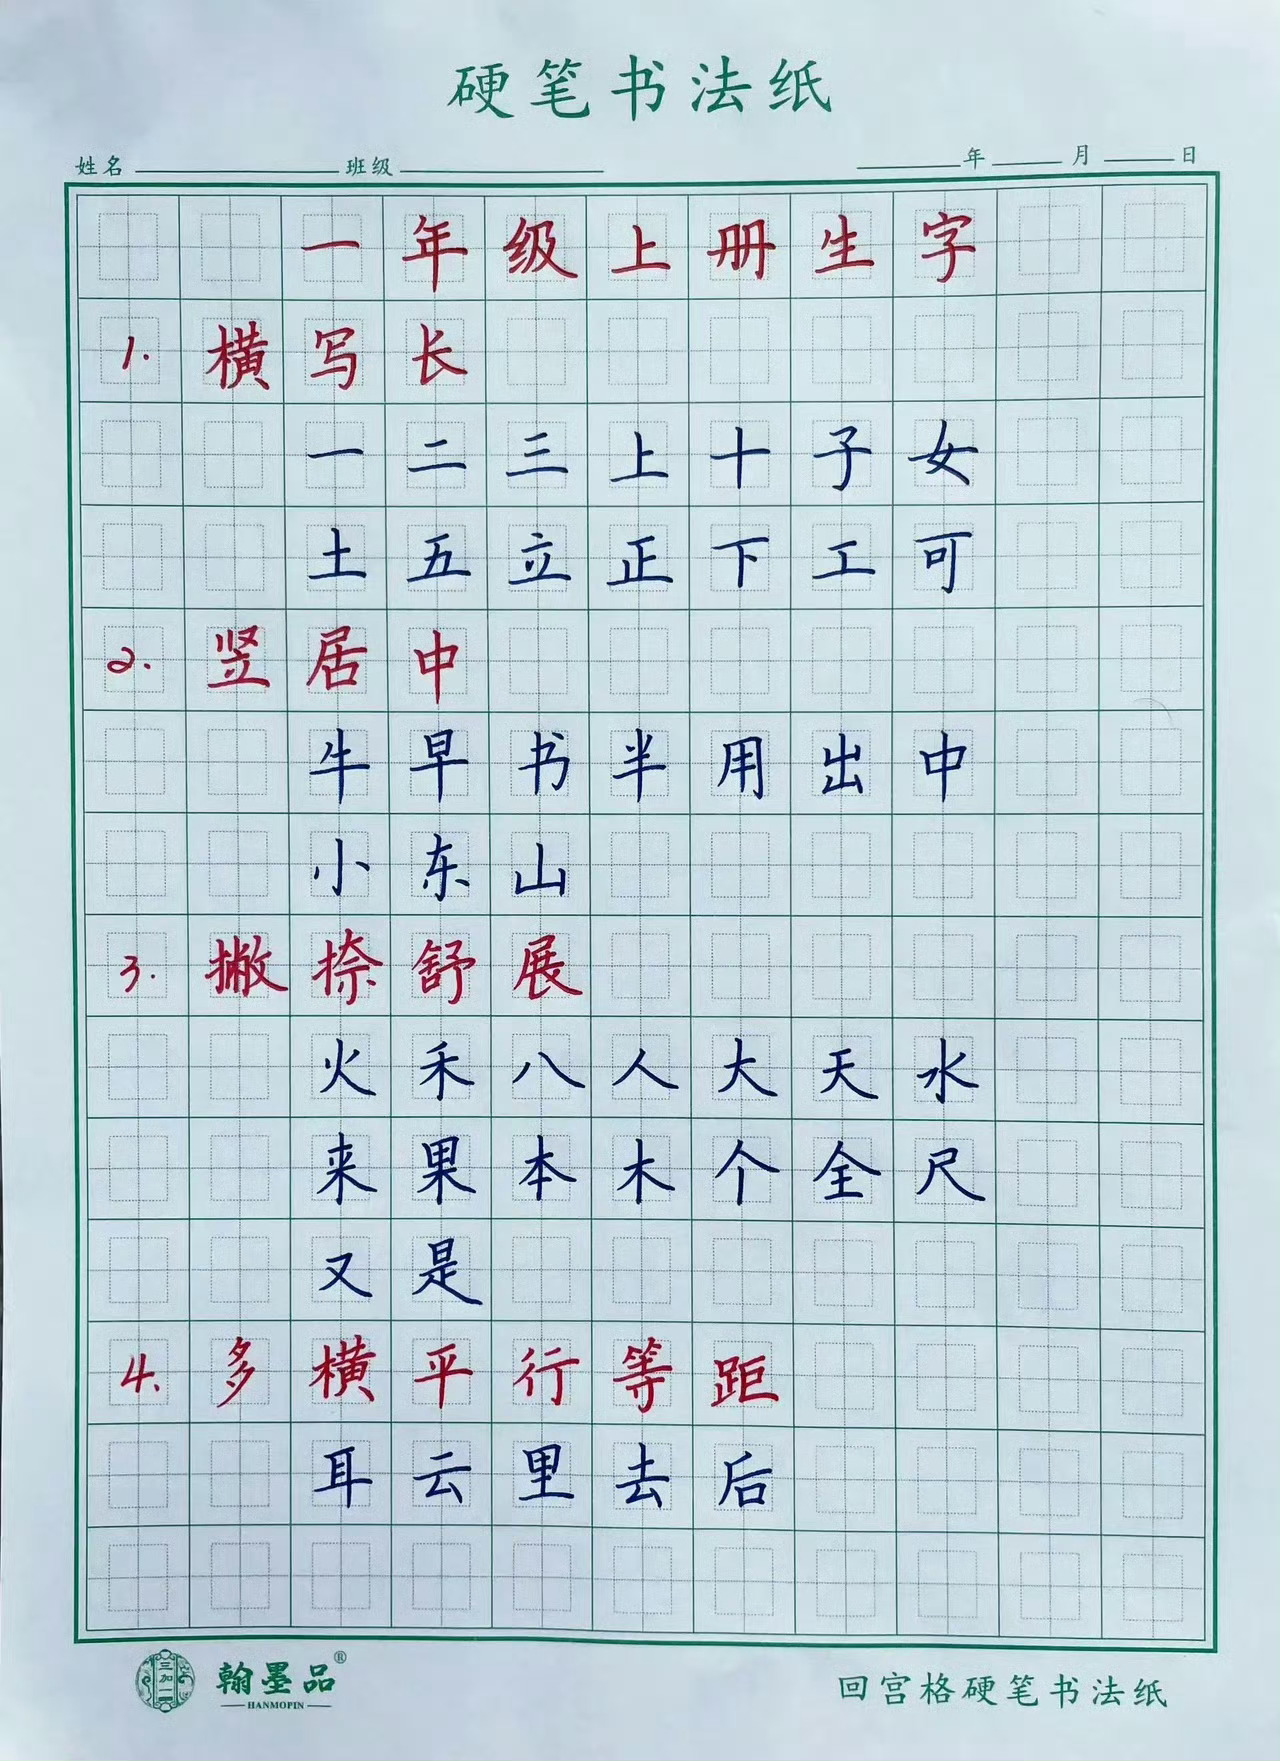 硬笔书法纸
姓名 班级 年 月 日
一年级上册生字
1. 横写长
一二三上十子女
土五立正下工可
2. 竖居中
牛早书半用出中
小东山
3. 撇捺舒展
火禾八人大天水
来果本木个全尺
又是
4. 多横平行等距
耳云里去后
三加一 翰墨品®
HANMOPIN
回宫格硬笔书法纸